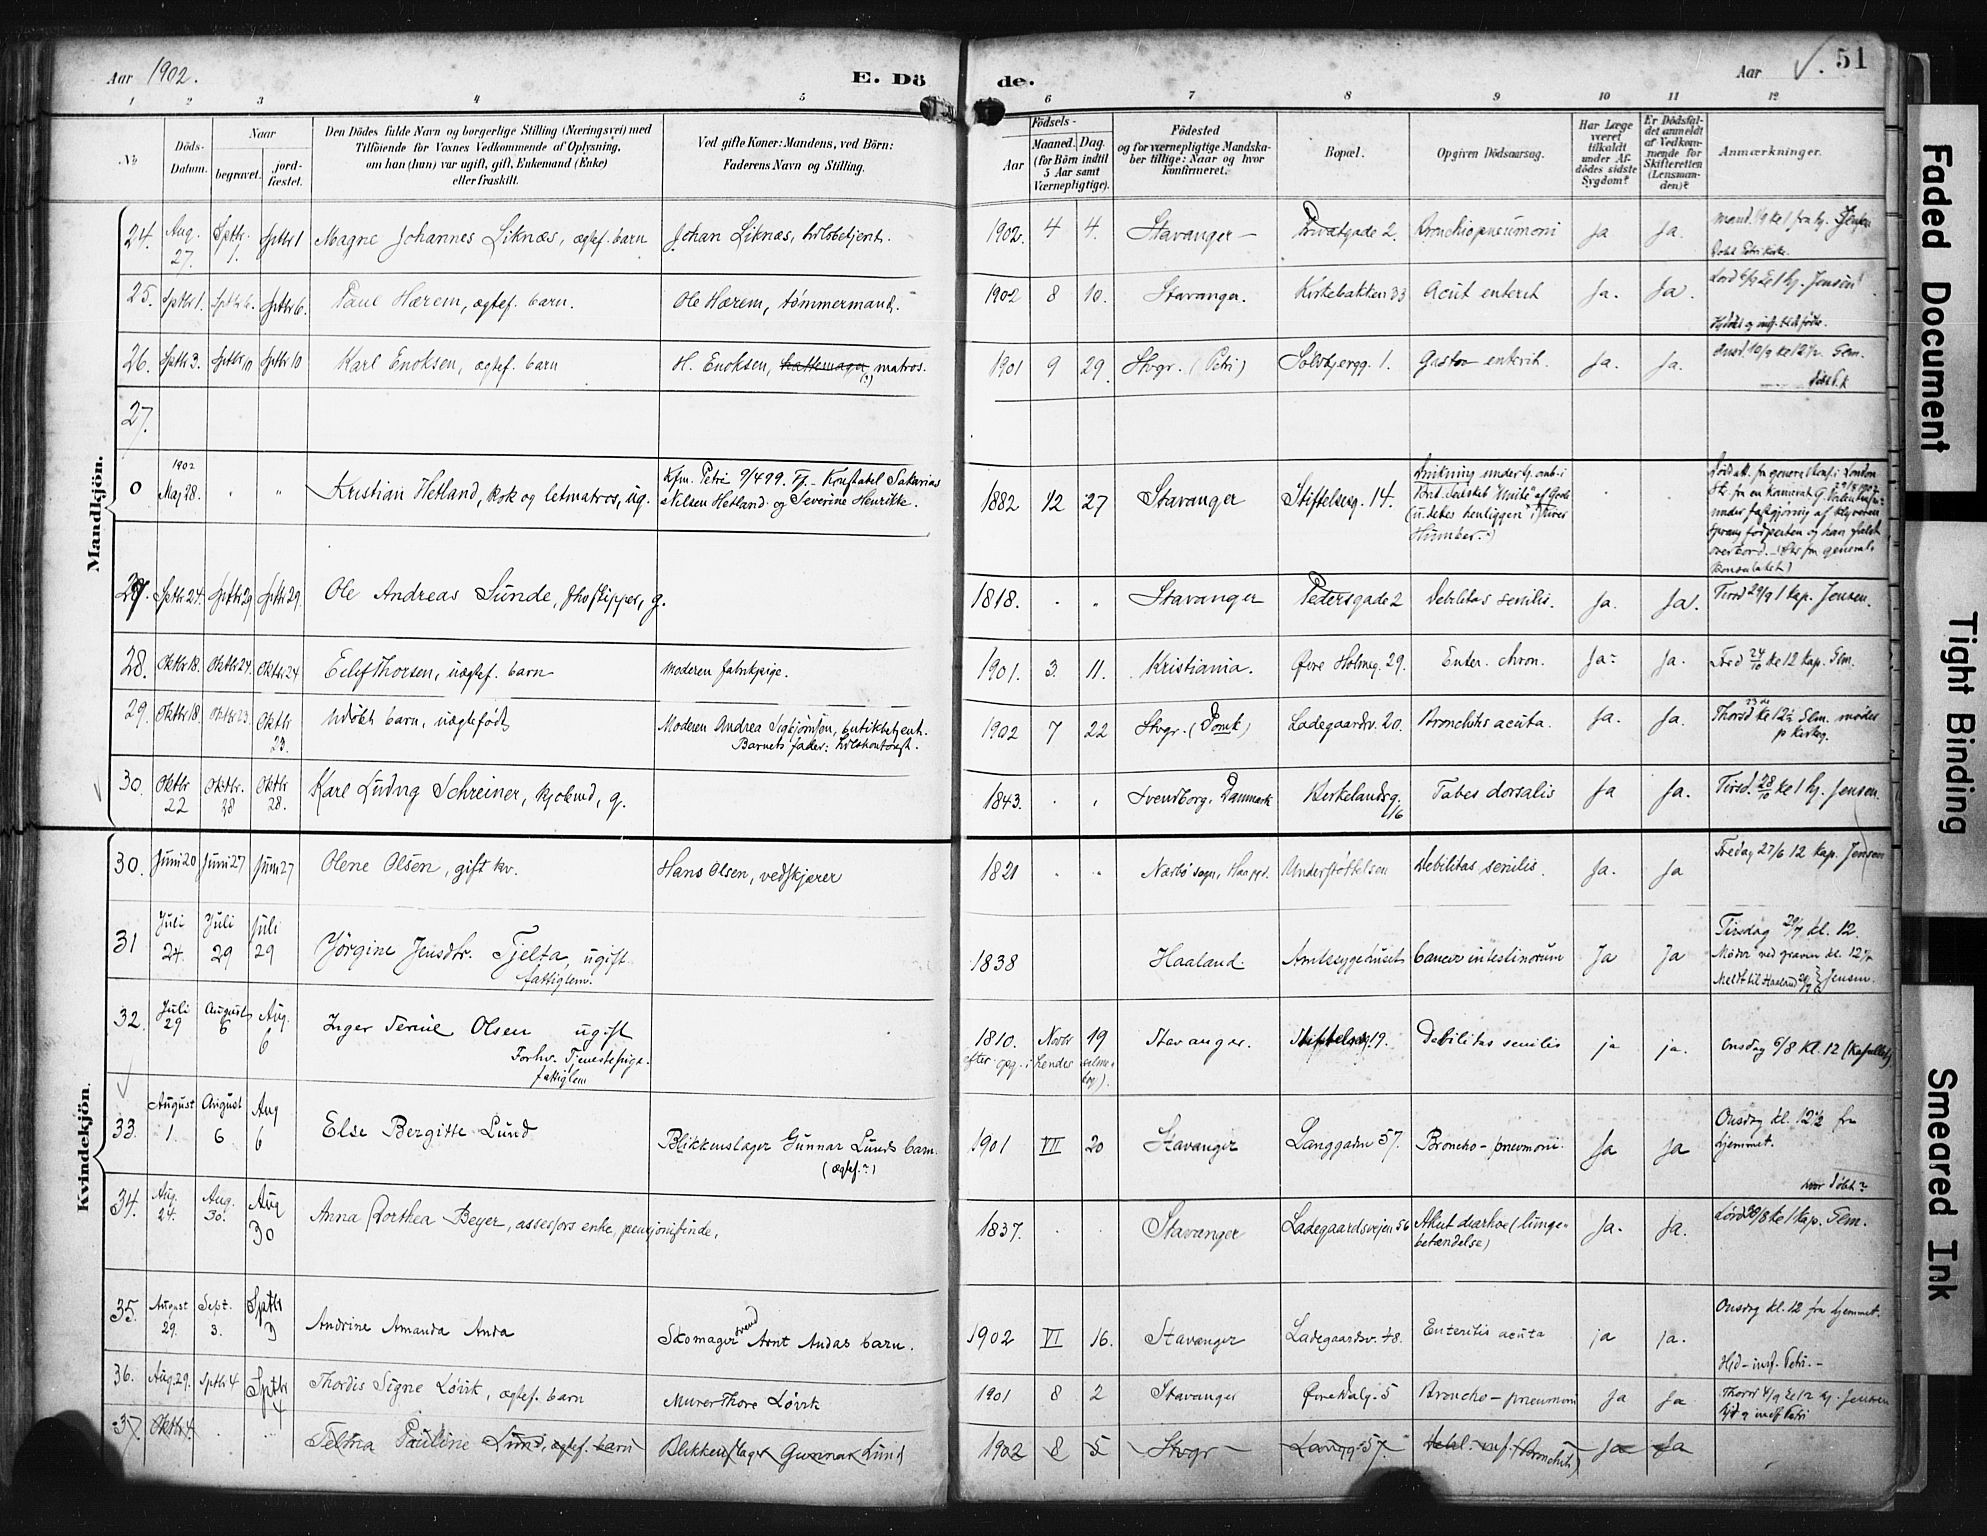 Aar 1902.
E. Dö de.
Aar
51
1 2 3 4 5 6 7 8 9 10 11 12
No
Döds-Datum.
Naar
begravet.
jord-fæstet.
Den Dödes fulde Navn og borgerlige Stilling (Næringsvei) med
Tilföiende for Voxnes Vedkommende af Oplysning,
om han (hun) var ugift, gift, Enkemand (Enke)
eller fraskilt.
Ved gifte Koner: Mandens, ved Börn:
Faderens Navn og Stilling.
Födsels-
Aar
Maaned. Dag.
(for Börn indtil
5 Aar samt
Værnepligtige).
Födested
og for værnepligtige Mandska-
ber tillige: Naar og hvor
konfirmeret.
Bopæl.
Opgiven Dödsaarsag.
Har Læge
været
tilkaldt
under Af-
dödes sidste
Sygdom?
Er Dödsfal-
det anmeldt
af Vedkom-
mende for
Skifteretten
(Lensman-
den)?
Anmærkninger.
Mandkjön.
24. Aug. 27. Sptbr. 1. Sptbr 1 Magne Johannes Liknæs, ægtef. barn Johan Liknæs, toldbetjent. 1902. 4 4. Stavanger Privatgade 2. Bronchiopneumoni Ja Ja.
25. Sptbr 1. Sptbr 6. Sptbr 6. Paul Hærem, ægtef. barn. Ole Hærem, tømmermand. 1902 8 10. Stavanger. Kirkebakken 33 Acut enterit Ja. Ja.
26. Sptbr 3. Sptbr 10 Sptbr 10 Karl Enoksen, ægtef. barn H. Enoksen, hattemager (?) matros. 1901 9 29. Stvgr. (Petri) Solvbjergg. 1. Gastro enterit. Ja. Ja.
27.
0 1902 Maj 28. Kristian Hetland, kok og letmatros, ug. Kfm. Petri 9/4 99. Fj. Konstabel Sakarias
Nilsen Hetland og Severine Henrikke. 1882 12 27 Stavanger Stiftelsesg. 14.
27. Sptbr 24. Sptbr 29 Sptbr 29. Ole Andreas Sunde, fhv skipper, g. 1818. Stavanger Pedersgade 2 Debilitas senilis. Ja. Ja. Tirsd 29/9 1 kap. Jensen.
28. Oktbr 18. Oktbr 24. Oktbr 24 Eilif Thorsen, uægtef. barn Moderen fabrikpige. 1901. 3. 11. Kristiania. Øvre Holmeg. 29. Enter. chron. Ja. Ja. Fred 24/10 kl 12 kap. Slm.
29. Oktbr 18. Oktbr 23. Oktbr 23. Udøbt barn, uægtefødt Moderen Andrea Sigbjørnsen, butikbetjent.
Barnets fader: 1902 7 22 Stvgr. (Domk) Ladegaardsv. 20. Bronchitis acuta. Ja. Ja.
30. Oktbr 22 Oktbr. 28 Oktbr. 28. Karl Ludvig Schreiner, kjobmd, g. 1843. Svendborg. Danmark Kirkelandsg. 16 Tabes dorsalis Ja Ja. Tirsd. 28/10 kl 1 hj. Jensen.
Kvindekjön.
30. Juni 20 Juni 27 Juni 27 Olene Olsen, gift kv. Hans Olsen, vedskjærer 1821 Nærbø sogn, Haa pgd. Understøttelsen Debilitas senilis. Ja. Ja Fredag 27/6 12 kap. Jensen
31 Juli 24. Juli 29 Juli 29 Jörgine Jensdtr. Tjelta, ugift
fattiglem. 1838 Haaland Amtssygehuset Cancer intestinorum Ja Ja Tirsdag 29/7 kl. 12.
Möder ved graven kl. 12½
Meldt til Haaland Jensen.
32. Juli 29 August 6 Aug. 6 Inger Serine Olsen ugift
Forhv. Tjenestepige.
fattiglem 1810. Novbr 19 Stavanger. Debilitas senilis ja ja. Onsdag 6/8 kl. 12 (Kapellet)
33. August 1. August 6 Aug 6 Else Bergitte Lund Blikkenslager Gunnar Lunds barn.
(ægtef.?) 1901 VII 20 Stavanger Langgaden 57. Broncho-pneumoni. Ja Ja Onsdag kl. 12½ fra
hjemmet.
hvor døbt?
34. Aug. 24. Aug. 30. Aug 30 Anna Dorthea Beyer, assessors enke, pensjonistinde. 1837. Stavanger Ladegaardsveien 56 Akut diarhoe (lunge-
betændelse) Ja. Ja. Lørd 30/8 kl 1 kap. Slm.
35. August 29. Sept. 3. Sptbr 3 Andrine Amanda Anda Skomagersvend Arnt Andas barn. 1902 VI 16. Stavanger Ladegaardsv. 48. Enteritis acuta ja ja. Onsdag kl. 12 fra hjemmet.
Hjd-insf. Petri.-
36. Aug. 29. Sptbr 4 Sptbr 4 Thordis Signe Lövik, ægtef. barn Murer Thore Lövik 1901 8 2 Stavanger Øvre Dalg. 5 Broncho-pneumoni Ja Ja
37 Oktbr 4 Telma Pauline Lund, ægtef. barn Blikkenslager Gunnar Lund 1902 8 5 Stvgr Langg. 57. (Bronchit) Ja Ja
Faded Document
Tight Binding
Smeared Ink